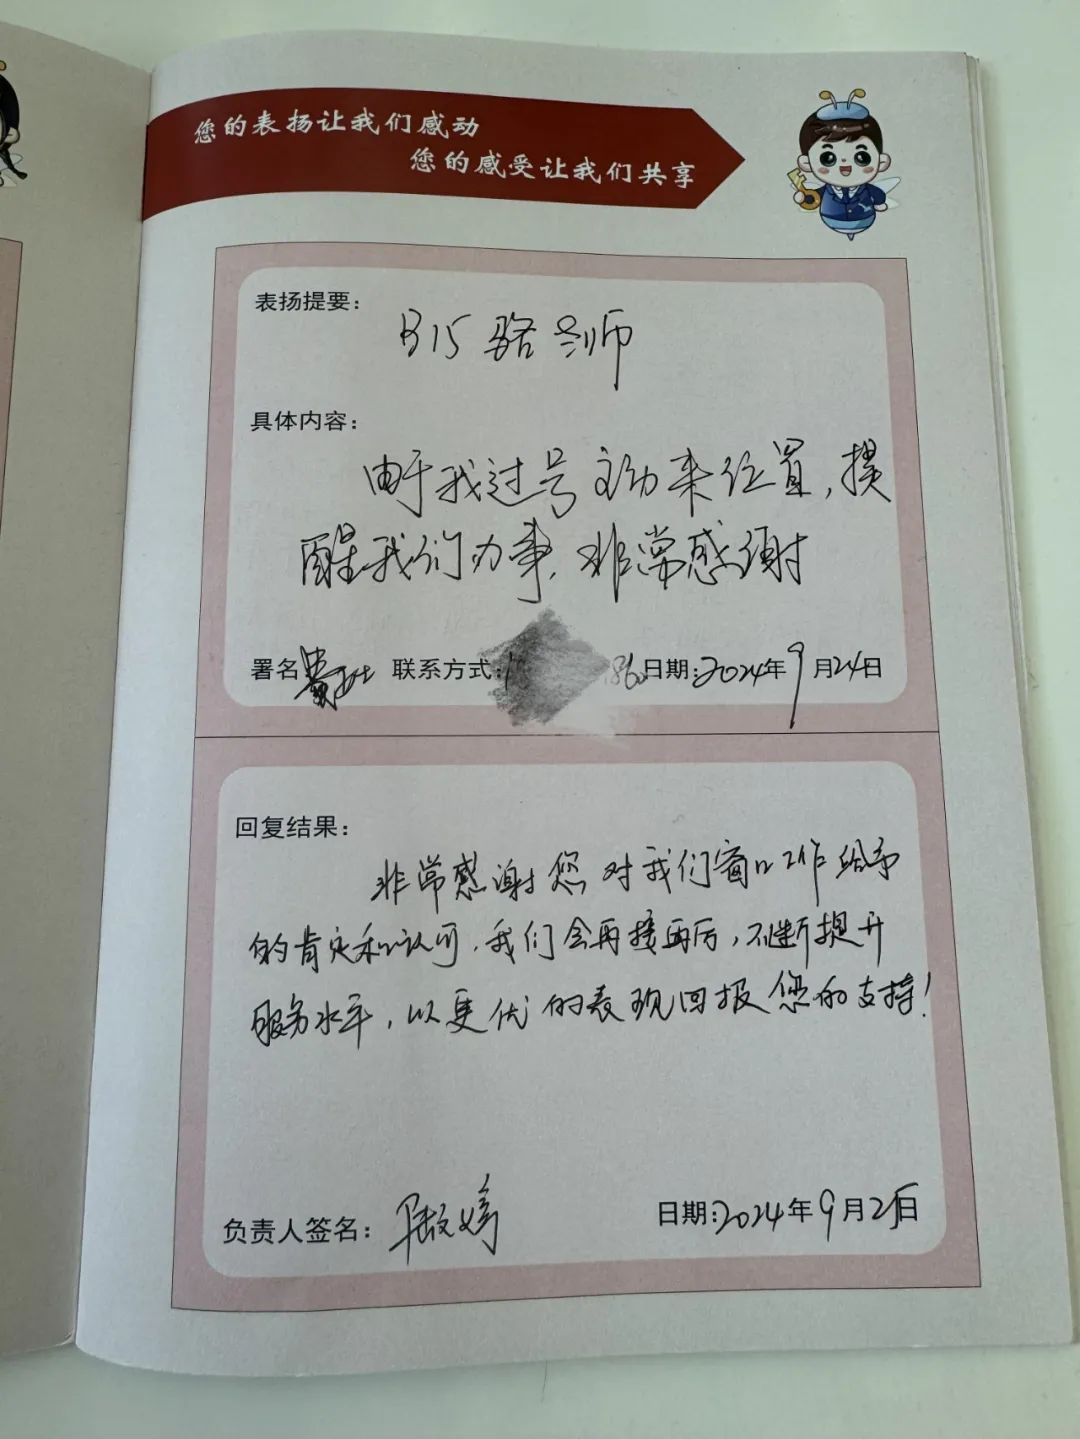 您的表扬让我们感动
您的感受让我们共享
表扬提要：
B15 骆
具体内容：
由于我过号主动来位置，提
醒我们办事，非常感谢
署名 联系方式：1 186 日期：2024年9月24日
回复结果：
非常感谢您对我们窗口工作给予
的肯定和认可，我们会再接再厉，不断提升
服务水平，以更优的表现回报您的支持！
负责人签名： 日期：2024年9月25日